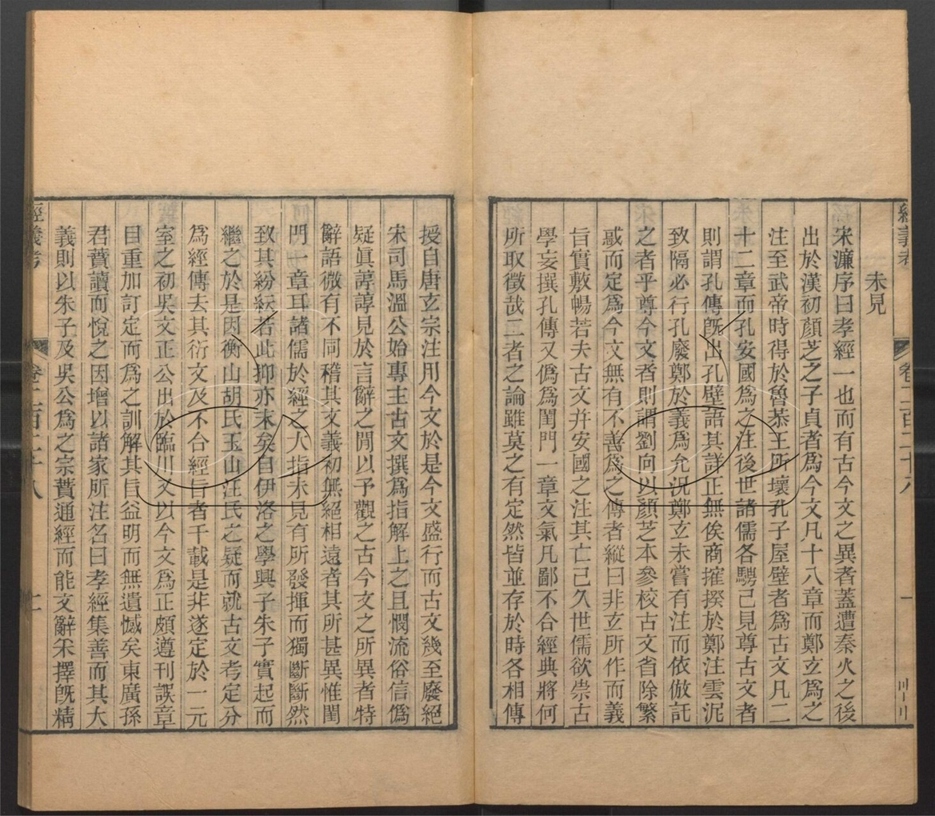 經義考 卷二百二十八
未見
宋濂序曰孝經一也而有古今文之異者蓋遭秦火之後
出於漢初顏芝之子貞者為今文凡十八章而鄭玄為之
注至武帝時得於魯恭王所壞孔子屋壁者為古文凡二
十二章而孔安國為之注後世諸儒各騁己見尊古文者
則謂孔傳旣出孔壁語其詳正無俟商搉揆於鄭注雲泥
致隔必行孔廢鄭於義為允況鄭玄未嘗有注而依倣託
之者乎尊今文者則謂劉向以顏芝本參校古文省除繁
惑而定為今文無有不善為之傳者縱曰非玄所作而義
旨實敷暢若夫古文并安國之注其亡已久世儒欲崇古
學妄撰孔傳又偽為閨門一章文氣凡鄙不合經典將何
所取徵哉二者之論雖莫之有定然皆並存於時各相傳
授自唐玄宗注用今文於是今文盛行而古文幾至廢絕
宋司馬溫公始專主古文撰為指解上之且憫流俗信偽
疑眞諄諄見於言辭之閒以予觀之古今文之所異者特
辭語微有不同稽其文義初無絕相遠者其所甚異惟閨
門一章耳諸儒於經之大指未見有所發揮而獨斷斷然
致其紛紜若此抑亦末矣自伊洛之學興子朱子實起而
繼之於是因衡山胡氏玉山汪氏之疑而就古文考定分
為經傳去其衍文及不合經旨者千載是非遂定於一元
室之初吳文正公出於臨川又以今文為正頗遵刊誤章
目重加訂定而為之訓解其旨益明而無遺憾矣東廣孫
君蕡讀而悅之因增以諸家所注名曰孝經集善而其大
義則以朱子及吳公為之宗蕡通經而能文辭采擇旣精
經義考 卷二百二十八